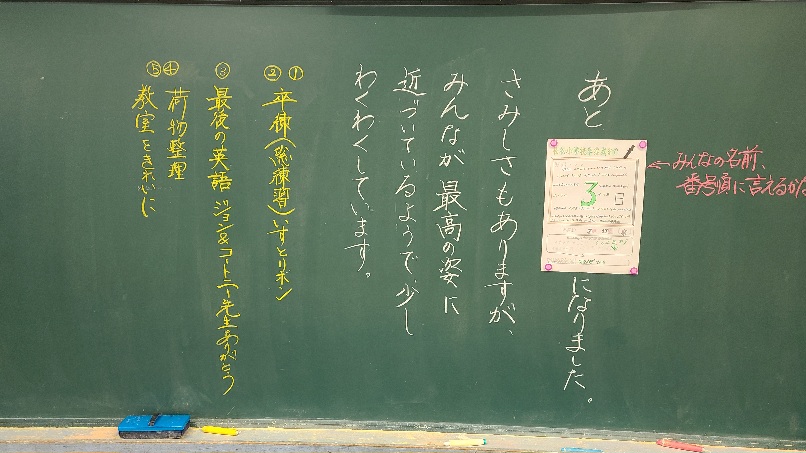 あと
3
日
になりました。
さみしさもありますが、
みんなが最高の姿に
近づいているようで、少し
わくわくしています。
←みんなの名前、
番号順に言えるかな
① ② 卒練(総練習)いすとリボン
③ 最後の英語 ジョン&コートニー先生ありがとう
④ 荷物整理
⑤ 教室をきれいに